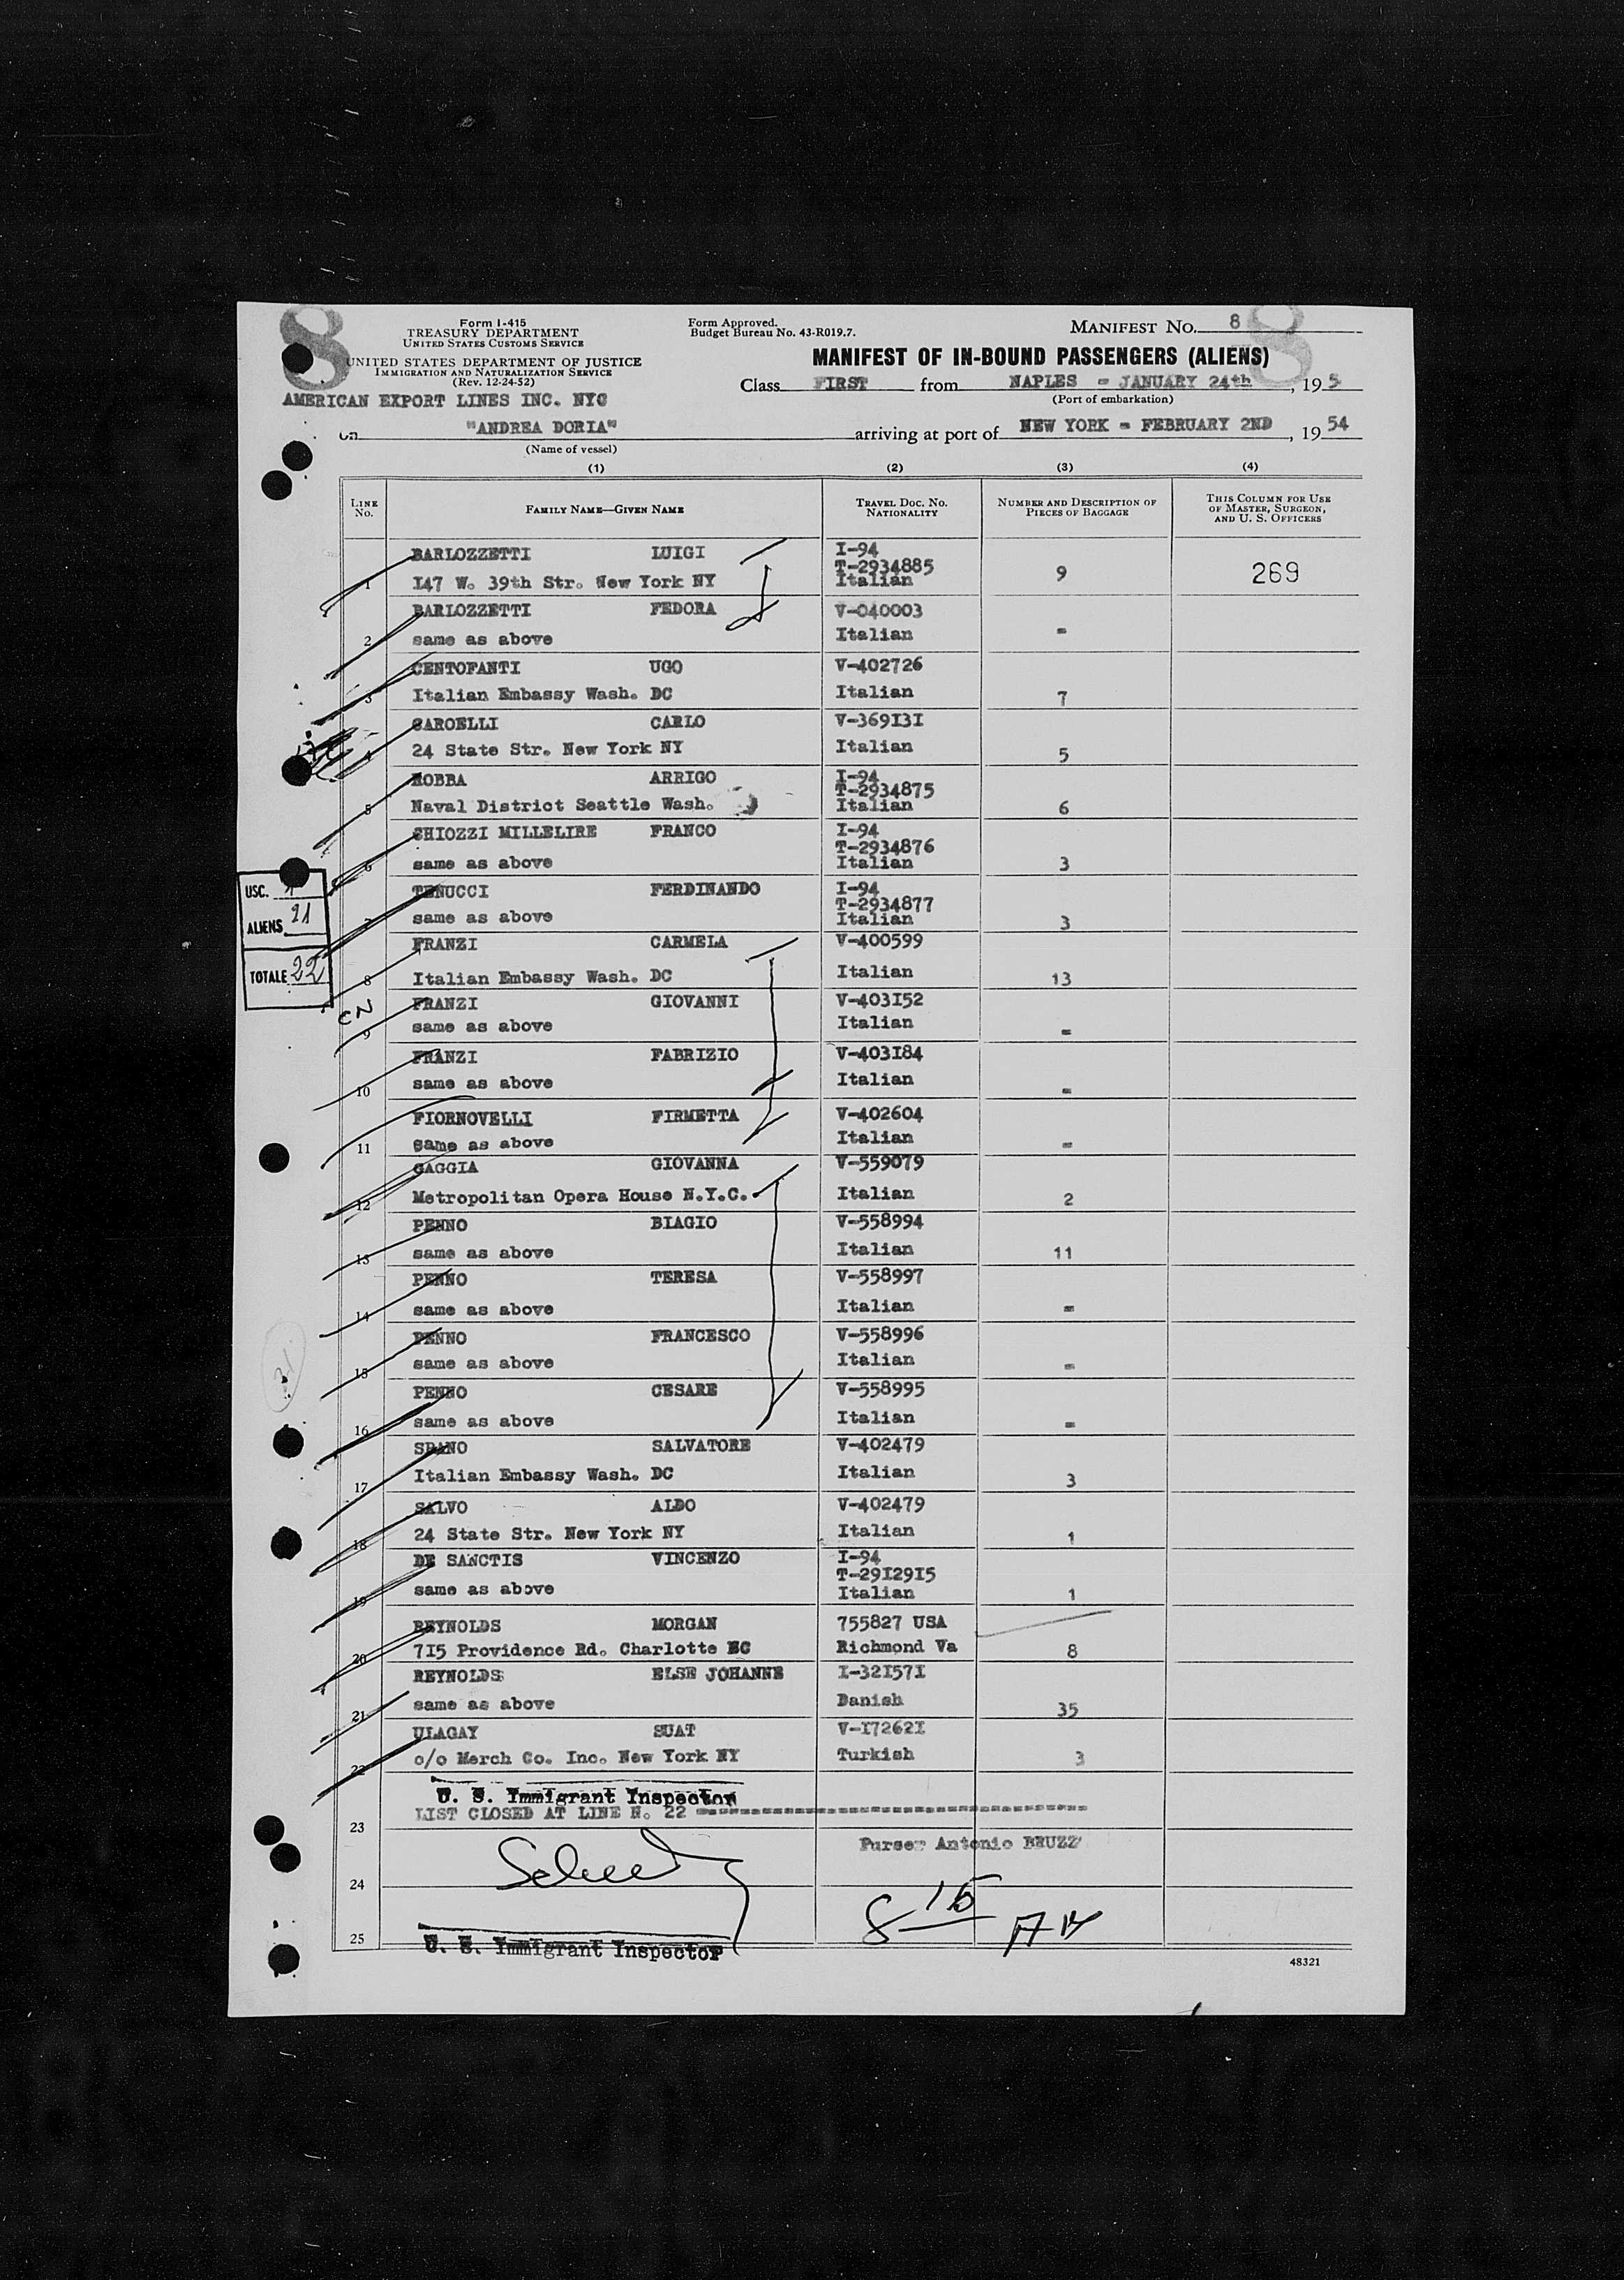 8
Form I-415
TREASURY DEPARTMENT
UNITED STATES CUSTOMS SERVICE
UNITED STATES DEPARTMENT OF JUSTICE
IMMIGRATION AND NATURALIZATION SERVICE
(Rev. 12-24-52)
Form Approved.
Budget Bureau No. 43-R019.7.
MANIFEST NO. 8
8
MANIFEST OF IN-BOUND PASSENGERS (ALIENS)
Class FIRST from NAPLES - JANUARY 24th, 195
(Port of embarkation)
AMERICAN EXPORT LINES INC. NYC
on "ANDREA DORIA" arriving at port of NEW YORK - FEBRUARY 2ND, 1954
(Name of vessel)
(1) (2) (3) (4)
LINE No. FAMILY NAME—GIVEN NAME TRAVEL DOC. NO. NATIONALITY NUMBER AND DESCRIPTION OF PIECES OF BAGGAGE THIS COLUMN FOR USE OF MASTER, SURGEON, AND U. S. OFFICERS
BARLOZZETTI LUIGI I-94
T-2934885
1 I47 W. 39th Str. New York NY Italian 9 269
BARLOZZETTI FEDORA V-040003
2 same as above Italian -
CENTOFANTI UGO V-402726
3 Italian Embassy Wash. DC Italian 7
CARO​ELLI CARLO V-369I3I
4 24 State Str. New York NY Italian 5
ROBBA ARRIGO I-94
T-2934875
5 Naval District Seattle Wash. Italian 6
CHIOZZI MILLELIRE FRANCO I-94
T-2934876
6 same as above Italian 3
TENUCCI FERDINANDO I-94
T-2934877
7 same as above Italian 3
USC. 1
ALIENS 21
TOTALE 22
FRANZI CARMELA V-400599
8 Italian Embassy Wash. DC Italian 13
CN
FRANZI GIOVANNI V-403I52
9 same as above Italian -
FRANZI FABRIZIO V-403I84
10 same as above Italian -
FIORNOVELLI FIRMETTA V-402604
11 same as above Italian -
GAGGIA GIOVANNA V-559079
12 Metropolitan Opera House N.Y.C. Italian 2
PENNO BIAGIO V-558994
13 same as above Italian 11
PENNO TERESA V-558997
14 same as above Italian -
PENNO FRANCESCO V-558996
15 same as above Italian -
PENNO CESARE V-558995
16 same as above Italian -
SPANO SALVATORE V-402479
17 Italian Embassy Wash. DC Italian 3
SALVO ALDO V-402479
18 24 State Str. New York NY Italian 1
DE SANCTIS VINCENZO I-94
T-29I29I5
19 same as above Italian 1
REYNOLDS MORGAN 755827 USA
20 7I5 Providence Rd. Charlotte NC Richmond Va 8
REYNOLDS ELSE JOHANNE I-32I57I
21 same as above Danish 35
ULAGAY SUAT V-I7262I
22 c/o Merch Co. Inc. New York NY Turkish 3
U. S. Immigrant Inspector
LIST CLOSED AT LINE N. 22
23 Purser Antonio BRUZZ
24
8 15 AM
25
U. S. Immigrant Inspector
48321